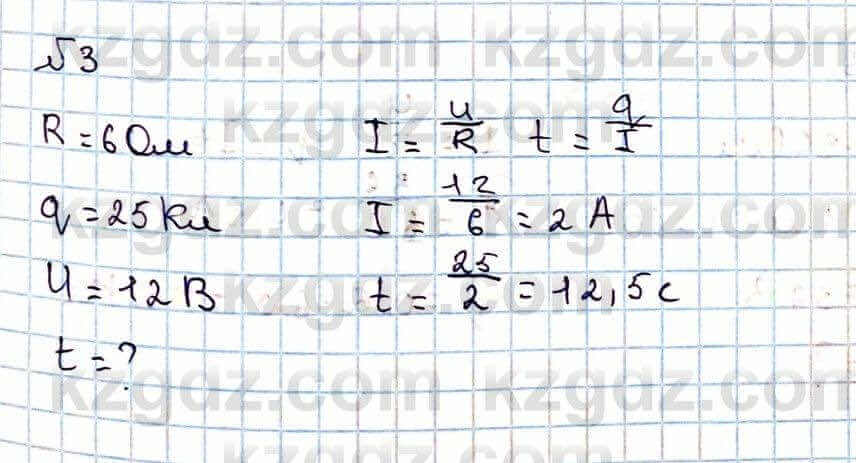 kzgdz.com kzgdz.com kzgdz.com
№3
R = 6 Ом I = U/R t = q/I
kzgdz.com kzgdz.com
q = 25 Кл I = 12/6 = 2 А
kzgdz.com kzgdz.com
U = 12 В t = 25/2 = 12,5 с
kzgdz.com kzgdz.com
t = ?
kzgdz.com kzgdz.com